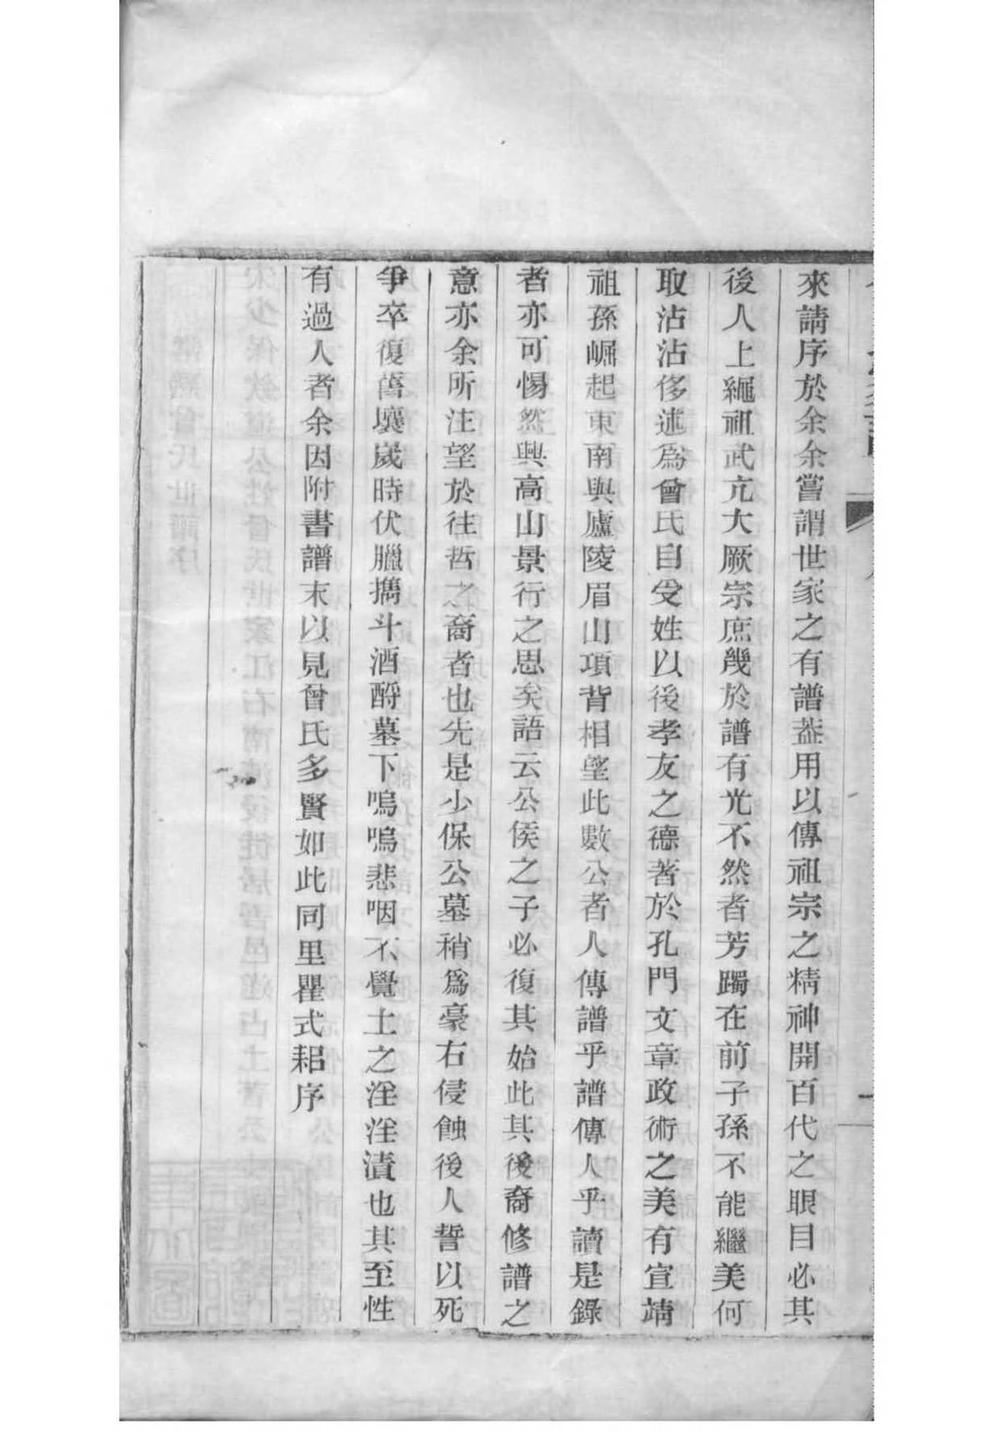 來請序於余余嘗謂世家之有譜葢用以傳祖宗之精神開百代之眼目必其
後人上繩祖武亢大厥宗庶幾於譜有光不然者芳躅在前子孫不能繼美何
取沾沾侈述爲曾氏自受姓以後孝友之德著於孔門文章政術之美有宣靖
祖孫崛起東南與廬陵眉山項背相望此數公者人傳譜乎譜傳人乎讀是錄
者亦可惕然興高山景行之思矣語云公侯之子必復其始此其後裔修譜之
意亦余所注望於往哲之裔者也先是少保公墓稍爲豪右侵蝕後人誓以死
爭卒復舊壤歲時伏臘擕斗酒酹墓下嗚嗚悲咽不覺土之淫淫漬也其至性
有過人者余因附書譜末以見曾氏多賢如此同里瞿式耜序